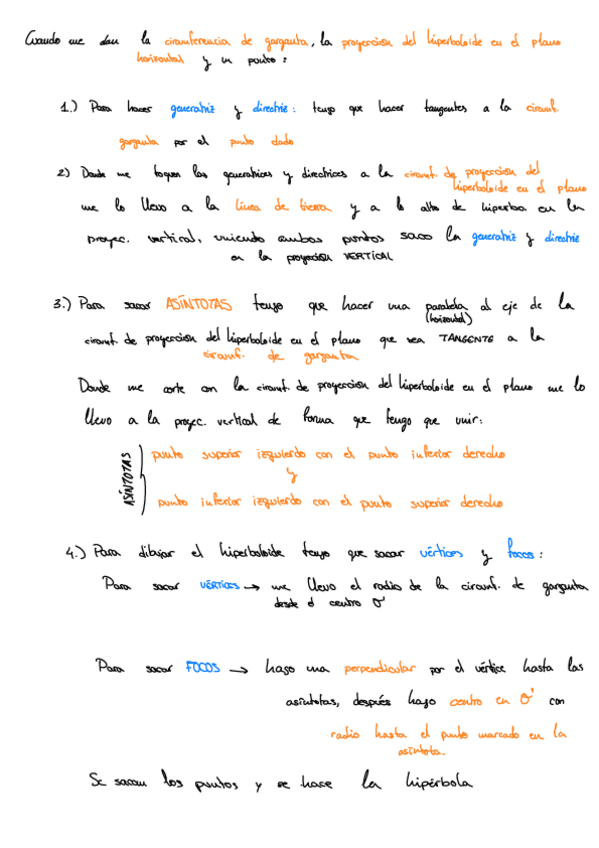 Cuando me dan la circunferencia de garganta, la proyección del hiperboloide en el plano
horizontal y un punto:
1.) Para hacer generatriz y directriz: tengo que hacer tangentes a la circunf.
garganta por el punto dado
2) Donde me toquen las generatrices y directrices a la circunf. de proyección del
hiperboloide en el plano
me lo llevo a la línea de tierra y a lo alto de hiperbo. en la
proyec. vertical, uniendo ambos puntos saco la generatriz y directriz
en la proyección VERTICAL
3.) Para sacar ASÍNTOTAS tengo que hacer una paralela al eje de la
(horizontal)
circunf. de proyección del hiperboloide en el plano que sea TANGENTE a la
circunf. de garganta
Donde me corte con la circunf. de proyección del hiperboloide en el plano me lo
llevo a la proyec. vertical de forma que tengo que unir:
ASÍNTOTAS
punto superior izquierdo con el punto inferior derecho
y
punto inferior izquierdo con el punto superior derecho
4.) Para dibujar el hiperboloide tengo que sacar vértices y focos:
Para sacar VÉRTICES → me llevo el radio de la circunf. de garganta
desde el centro O'
Para sacar FOCOS → hago una perpendicular por el vértice hasta las
asíntotas, después hago centro en O' con
radio hasta el punto marcado en la
asíntota.
Se sacan los puntos y se hace la hipérbola